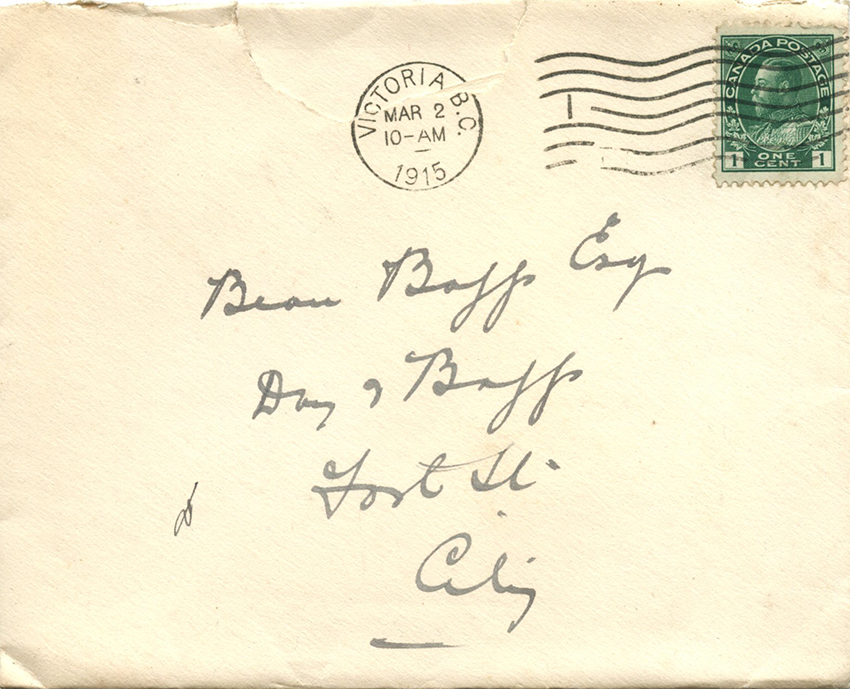 VICTORIA B.C.
MAR 2
10-AM
1915
1
CANADA POSTAGE
1 ONE CENT 1
Beau Boggs Esq
Day & Boggs
Fort St.
City